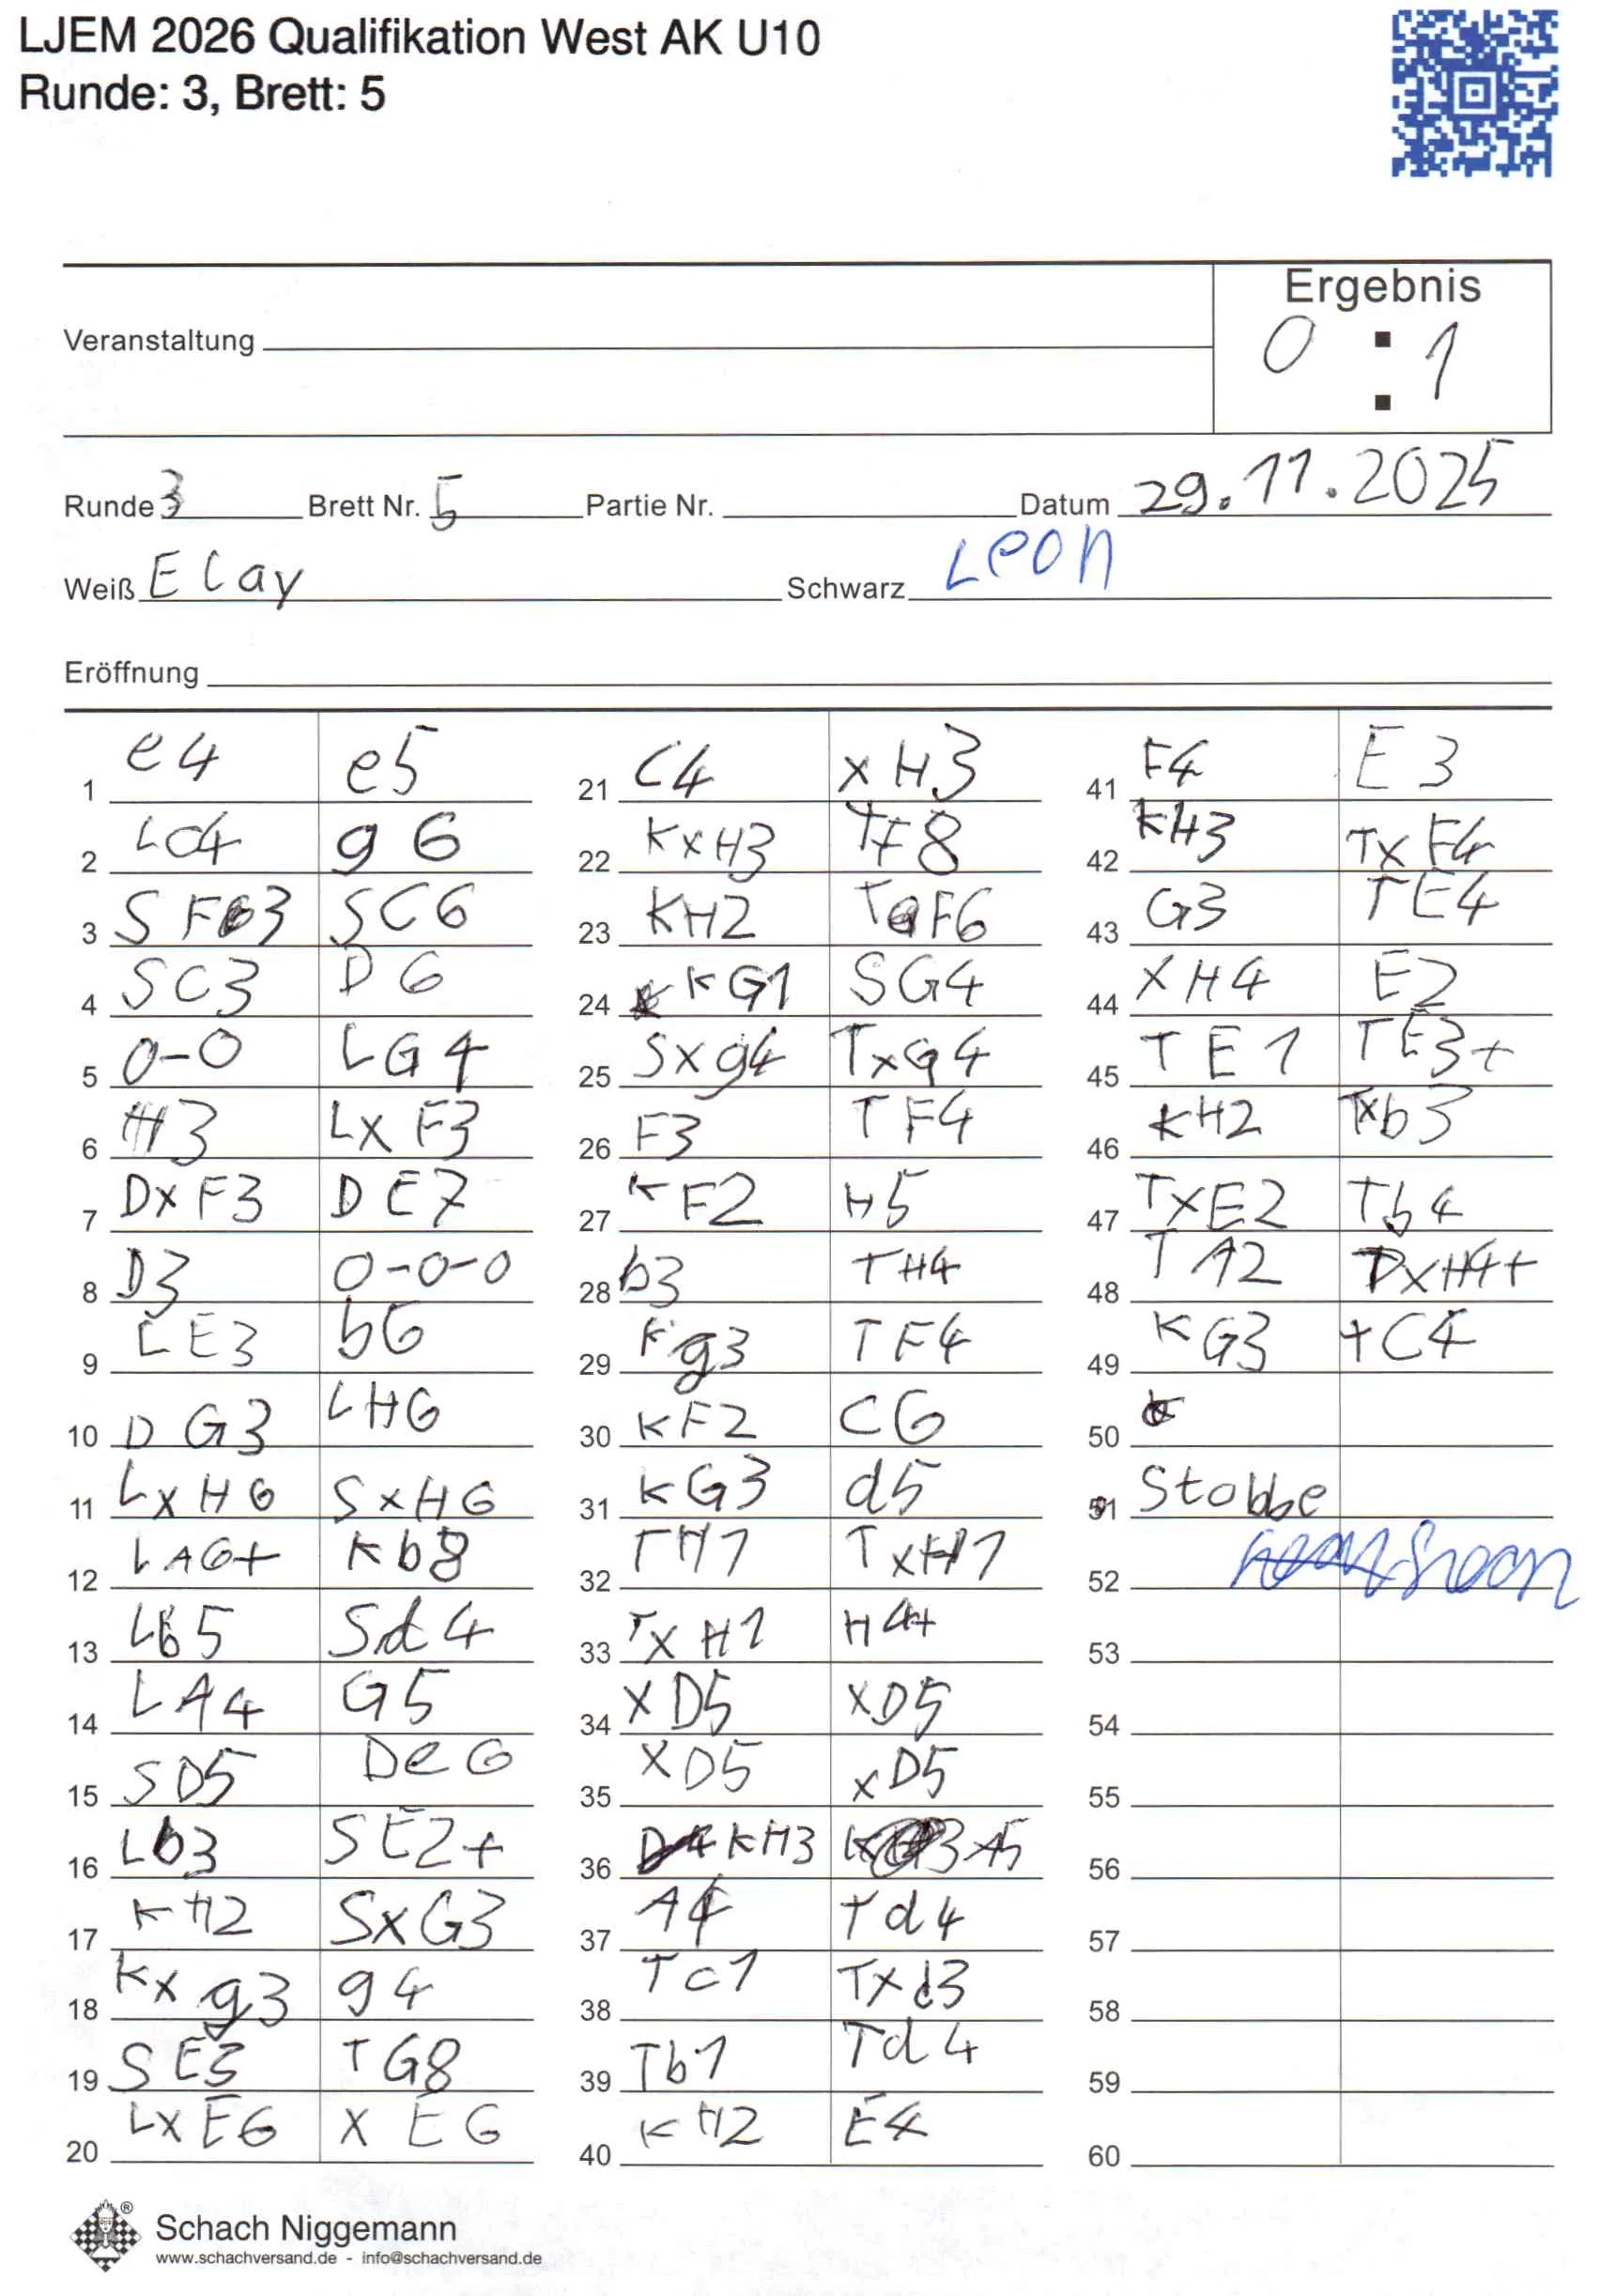 LJEM 2026 Qualifikation West AK U10
Runde: 3, Brett: 5
Ergebnis
Veranstaltung
0 : 1
Runde 3 Brett Nr. 5 Partie Nr. Datum 29.11.2025
Weiß Elay Schwarz Leon
Eröffnung
1 e4 e5
2 Lc4 g6
3 SF3 SC6
4 SC3 D6
5 0-0 LG4
6 H3 LxF3
7 DxF3 DE7
8 D3 0-0-0
9 LE3 b6
10 DG3 LH6
11 LxH6 SxH6
12 LA6+ Kb8
13 Lb5 Sd4
14 LA4 G5
15 SD5 De6
16 Lb3 SE2+
17 KH2 SxG3
18 Kxg3 g4
19 SE3 TG8
20 LxE6 xE6
21 C4 xH3
22 KxH3 TF8
23 KH2 TGF6
24 KG1 SG4
25 Sxg4 TxG4
26 F3 TF4
27 KF2 H5
28 b3 TH4
29 Kg3 TF4
30 KF2 C6
31 KG3 d5
32 TH1 TxH1
33 TxH1 H4+
34 xD5 xD5
35 xD5 xD5
36 KH3 A5
37 A4 Td4
38 Tc1 Txd3
39 Tb1 Td4
40 KH2 E4
41 F4 E3
42 KH3 TxF4
43 G3 TE4
44 xH4 E2
45 TE1 TE3+
46 KH2 Txb3
47 TxE2 Tb4
48 TA2 TxH4+
49 KG3 +C4
50
51 Stobbe
52
53
54
55
56
57
58
59
60
Schach Niggemann
www.schachversand.de - info@schachversand.de